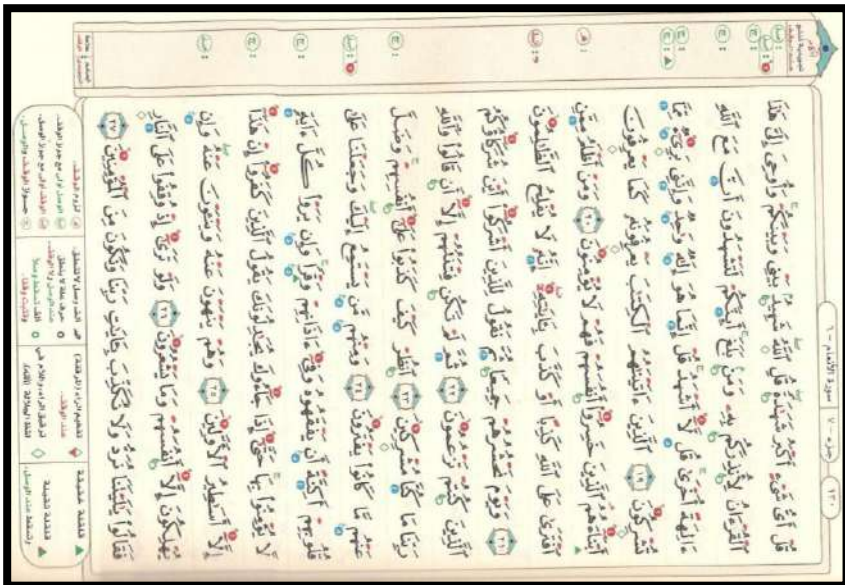 سورة الأنعام - ٦ جزء - ٧ ١٣٠
قُلْ أَيُّ شَىْءٍ أَكْبَرُ شَهَٰدَةً قُلِ ٱللَّهُ شَهِيدٌۢ بَيْنِى وَبَيْنَكُمْ وَأُوحِىَ إِلَىَّ هَٰذَا
ٱلْقُرْءَانُ لِأُنذِرَكُم بِهِۦ وَمَنۢ بَلَغَ أَئِنَّكُمْ لَتَشْهَدُونَ أَنَّ مَعَ ٱللَّهِ
ءَالِهَةً أُخْرَىٰ قُل لَّآ أَشْهَدُ قُلْ إِنَّمَا هُوَ إِلَٰهٌ وَٰحِدٌ وَإِنَّنِى بَرِىٓءٌ مِّمَّا
تُشْرِكُونَ ﴿١٩﴾ ٱلَّذِينَ ءَاتَيْنَٰهُمُ ٱلْكِتَٰبَ يَعْرِفُونَهُۥ كَمَا يَعْرِفُونَ
أَبْنَآءَهُمُ ٱلَّذِينَ خَسِرُوٓا۟ أَنفُسَهُمْ فَهُمْ لَا يُؤْمِنُونَ ﴿٢٠﴾ وَمَنْ أَظْلَمُ مِمَّنِ
ٱفْتَرَىٰ عَلَى ٱللَّهِ كَذِبًا أَوْ كَذَّبَ بِـَٔايَٰتِهِۦٓ إِنَّهُۥ لَا يُفْلِحُ ٱلظَّٰلِمُونَ
﴿٢١﴾ وَيَوْمَ نَحْشُرُهُمْ جَمِيعًا ثُمَّ نَقُولُ لِلَّذِينَ أَشْرَكُوٓا۟ أَيْنَ شُرَكَآؤُكُمُ
ٱلَّذِينَ كُنتُمْ تَزْعُمُونَ ﴿٢٢﴾ ثُمَّ لَمْ تَكُن فِتْنَتُهُمْ إِلَّآ أَن قَالُوا۟ وَٱللَّهِ
رَبِّنَا مَا كُنَّا مُشْرِكِينَ ﴿٢٣﴾ ٱنظُرْ كَيْفَ كَذَبُوا۟ عَلَىٰٓ أَنفُسِهِمْ وَضَلَّ
عَنْهُم مَّا كَانُوا۟ يَفْتَرُونَ ﴿٢٤﴾ وَمِنْهُم مَّن يَسْتَمِعُ إِلَيْكَ وَجَعَلْنَا عَلَىٰ
قُلُوبِهِمْ أَكِنَّةً أَن يَفْقَهُوهُ وَفِىٓ ءَاذَانِهِمْ وَقْرًا وَإِن يَرَوْا۟ كُلَّ ءَايَةٍ
لَّا يُؤْمِنُوا۟ بِهَا حَتَّىٰٓ إِذَا جَآءُوكَ يُجَٰدِلُونَكَ يَقُولُ ٱلَّذِينَ كَفَرُوٓا۟ إِنْ هَٰذَآ
إِلَّآ أَسَٰطِيرُ ٱلْأَوَّلِينَ ﴿٢٥﴾ وَهُمْ يَنْهَوْنَ عَنْهُ وَيَنْـَٔوْنَ عَنْهُ وَإِن
يُهْلِكُونَ إِلَّآ أَنفُسَهُمْ وَمَا يَشْعُرُونَ ﴿٢٦﴾ وَلَوْ تَرَىٰٓ إِذْ وُقِفُوا۟ عَلَى ٱلنَّارِ
فَقَالُوا۟ يَٰلَيْتَنَا نُرَدُّ وَلَا نُكَذِّبَ بِـَٔايَٰتِ رَبِّنَا وَنَكُونَ مِنَ ٱلْمُؤْمِنِينَ ﴿٢٧﴾
قلقلة خفيفة
قلقلة ثقيلة
عند الوقف.
لزوم الوقف.